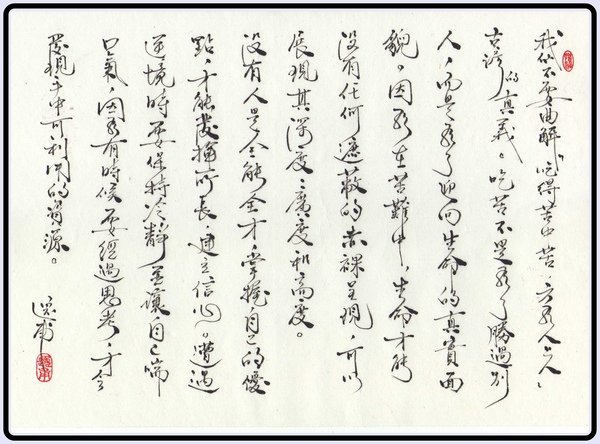 我們不要曲解「吃得苦中苦、方為人上人」
古諺的真義。吃苦不是為了勝過別
人,而是為了迎向生命的真實面
貌。因為在苦難中,生命才能
沒有任何遮蔽的赤裸呈現,可以
展現其深度、廣度和高度。
沒有人是全能全才,掌握自己的優
點,才能發揮所長,建立信心。遭遇
逆境時要保持冷靜並讓自己喘
口氣,因為有時候要經過思考,才會
發現手中可利用的資源。